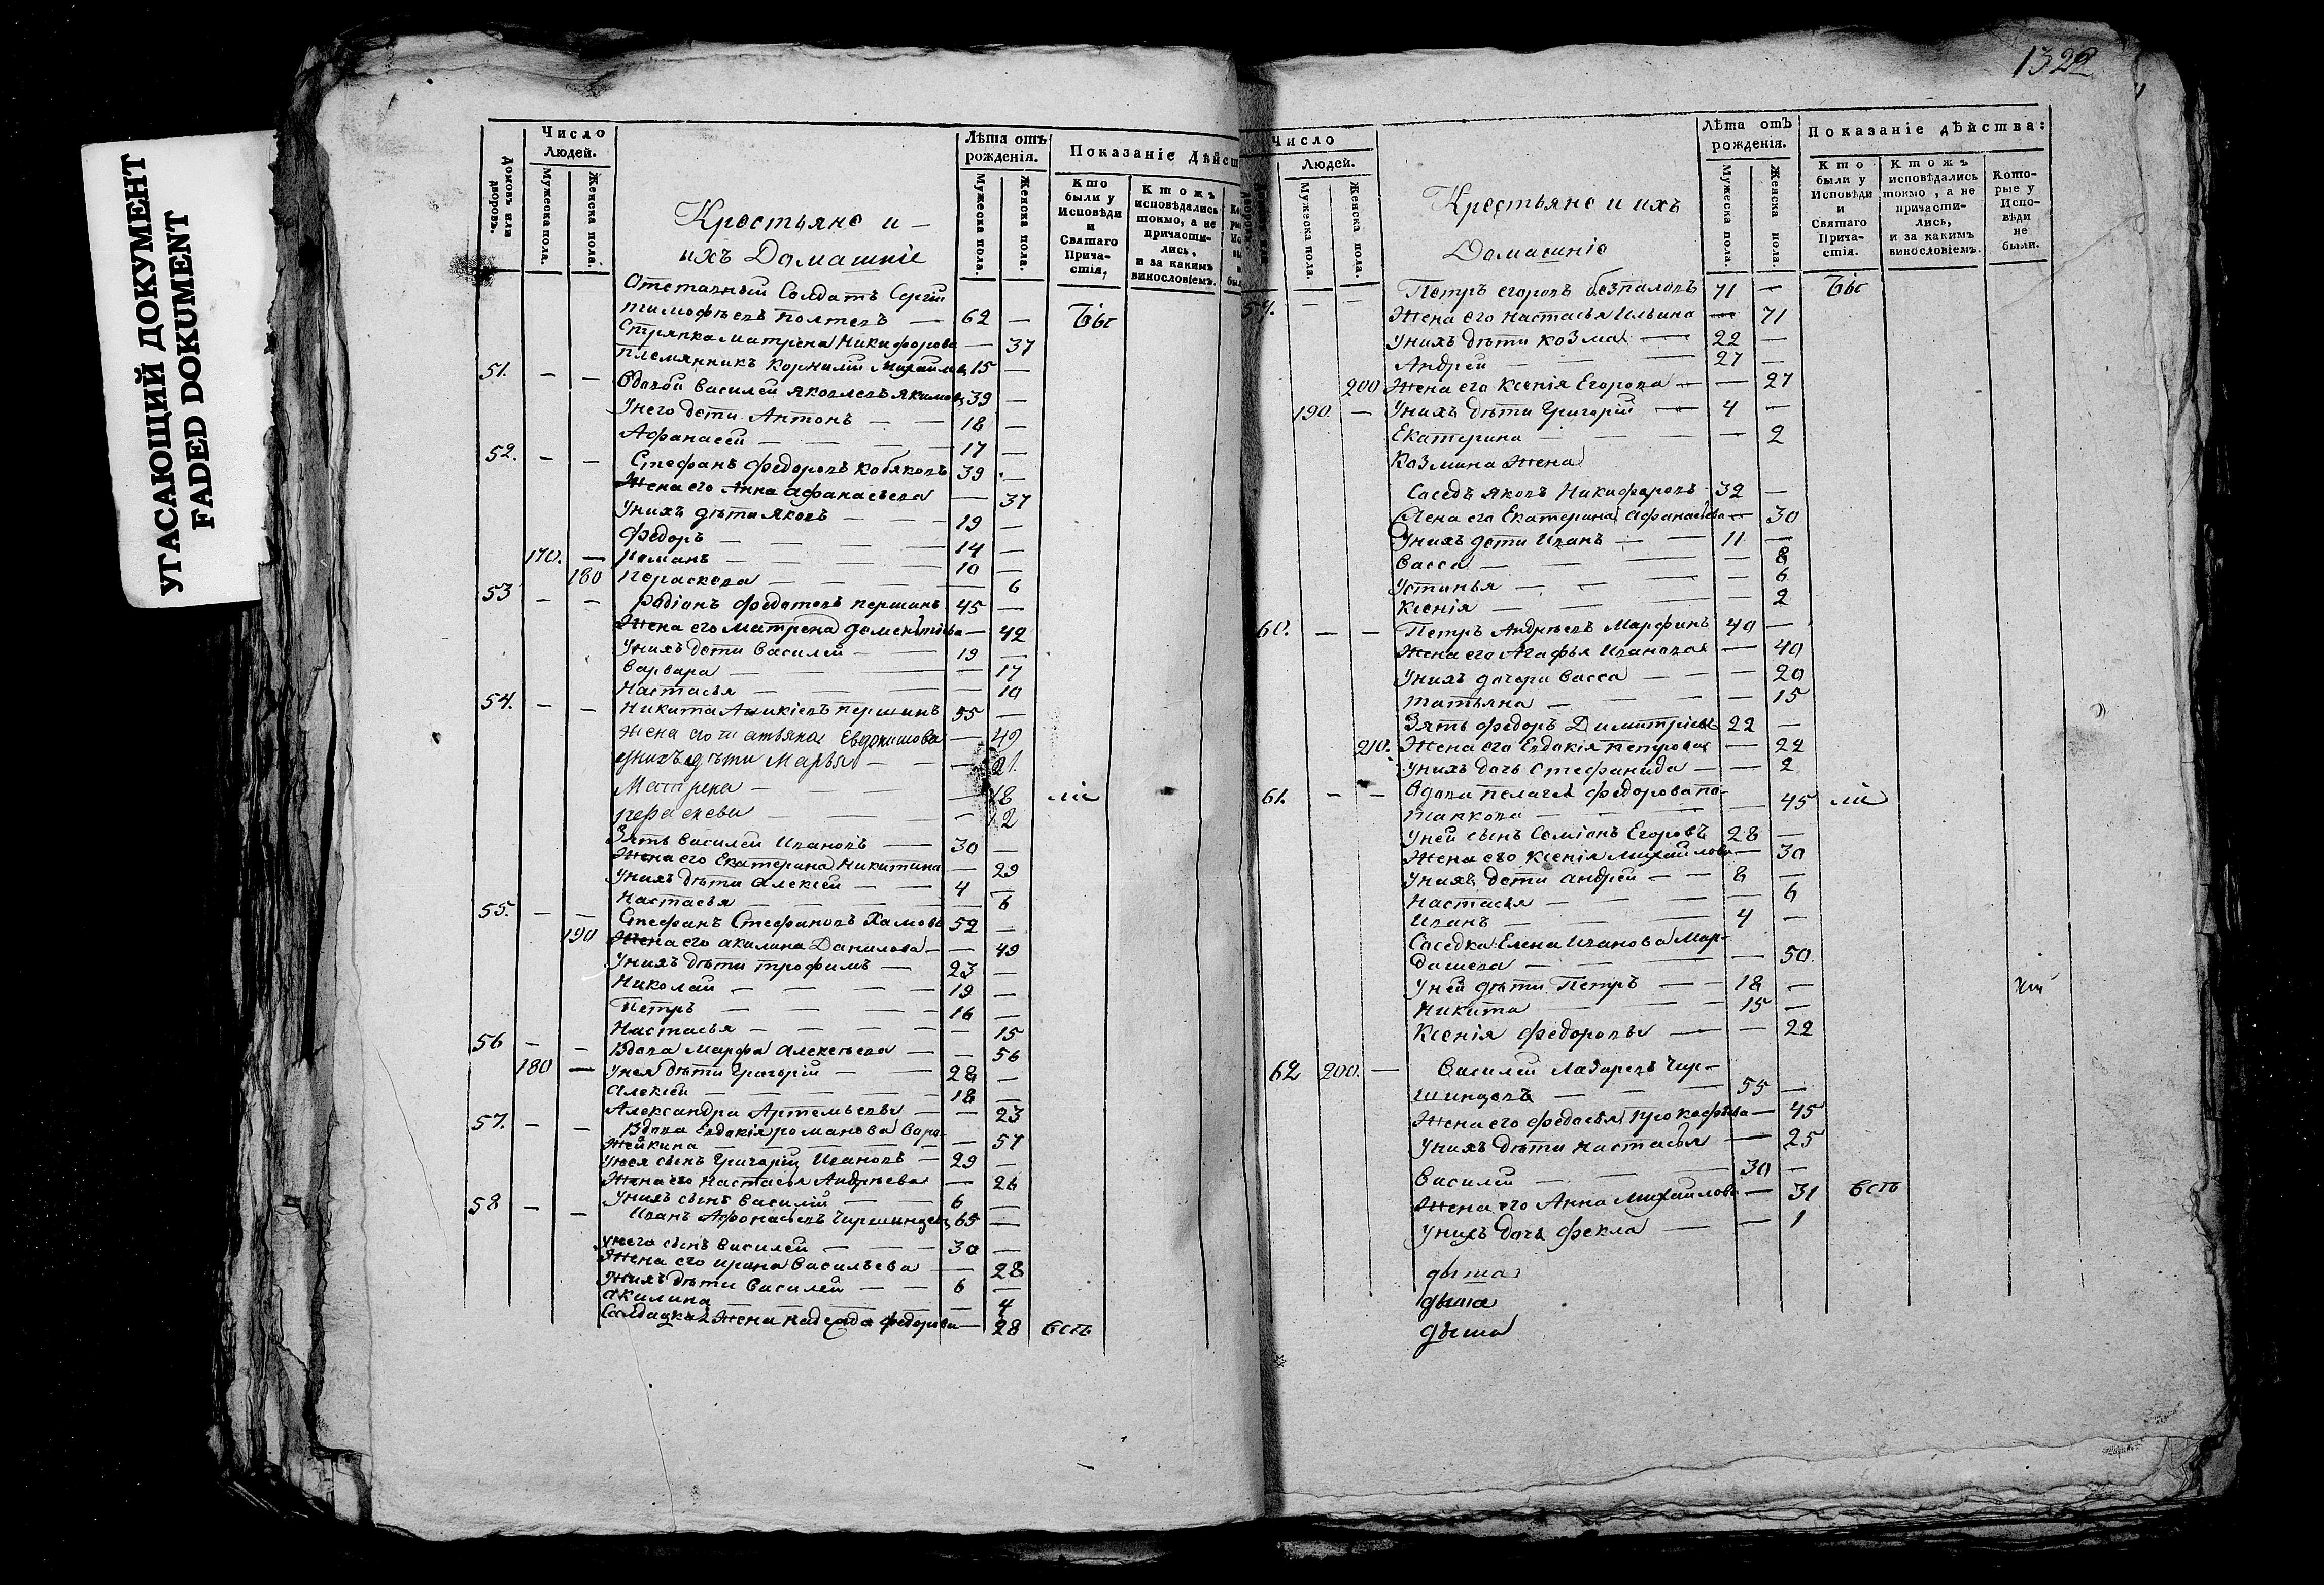 УГАСАЮЩИЙ ДОКУМЕНТ
FADED DOKUMENT
Домовъ или дворовъ.
Число Людей.
Мужеска пола.
Женска пола.
Крестьяне и
ихъ Домашніе
Лѣта отъ рожденія.
Мужеска пола.
Женска пола.
Показаніе Дѣйс
Кто были у Исповѣди и Святаго Прича-стія,
Ктожъ исповѣдались токмо, а не причасти-лись, и за какимъ винословіемъ.
Отставный Солдатъ Сергій
тимофѣевъ — 62 — Бы
Стряпка матрена Никифорова — 37
племянникъ корнилій Михайловъ 15 —
51. — — Вдовой Василей яковлевъ 39 —
Унего дети Антонъ — — 18 —
Афанасей — — — 17 —
52. — — Стефанъ федоровъ кобяковъ 39 —
Жена его Анна афанасьева — 37
Унихъ дѣти яковъ — — 19 —
федоръ — — — 14 —
170. — романъ — — — 10 —
180 пераскева — — — 6
53 — — Радіонъ федотовъ першинъ 45 —
Жена его матрена дементіева — 42
Унихъ дети Василей — — 19 —
варвара — — — 17
Настасья — — — 10
54. — — Никита першинъ 55 —
Жена его татьяна Евдокимова — 49
унихъ дѣти Марья — — — 21
Матрена — — 18 ли
пераскева — — 12
Зять василей Ивановъ — 30 —
Жена его Екатерина Никитина — 29
Унихъ дѣти алексѣй — — 4 —
Настасья — — — 6
55. — — Стефанъ Стефановъ Хамовъ 52 —
190 Жена его акилина Данилова — 49
Унихъ дѣти трофимъ — 23 —
Николай — — — 19 —
Петръ — — — 16 —
Настасья — — — 15
56 — — Вдова Марфа алексѣева — — 56
180 — Унея дѣти Григорій — — 28 —
алексѣй — — — 18 —
Александра Артемьева — — 23
57. — — Вдова Евдокія романова Вара-
жейкина — — — 57
Унея сынъ Григорій Ивановъ — 29 —
Жена его Настасья Андрѣева — 26
Унихъ сынъ василій — — 6 —
58 — — Иванъ Афонасьевъ Чиршинцевъ 65 —
унего сынъ василей — — 30 —
Жена его ирина васильева — 28
Унихъ дѣти василей — — 6 —
акилина — — — 4
Салдацкая Жена надежда федорова — 28 есть
1322
Число Людей.
Мужеска пола.
Женска пола.
Крестьяне и ихъ
Домашніе
Лѣта отъ рожденія.
Мужеска пола.
Женска пола.
Показаніе дѣйства:
Кто были у Исповѣди и Святаго Прича-стія.
Ктожъ исповѣдались токмо, а не причасти-лись, и за какимъ винословіемъ.
Кото-рые у Испо-вѣди не были.
— — Петръ егоровъ безпаловъ 71 — Бы
Жена его Настасья Ильина — 71
Унихъ дѣти козма — 22 —
Андрей — — 27 —
200 Жена его ксенія Егорова — — 27
190. — Унихъ дѣти Григорій — 4 —
Екатерина — — — 2
Козмина Жена
Соседъ яковъ Никифоровъ 32 —
Жена его Екатерина афанасьева — 30
Унихъ дети Иванъ — — 11 —
васса — — — 8
устинья — — — 6
ксенія — — — 2
60. — — Петръ Андрѣевъ Марфинъ 40 —
Жена его Агафья Иванова — 40
Унихъ дочери васса — — 20
татьяна — — — 15
Зять федоръ Димитріевъ 22 —
210. Жена его Евдокія петрова — 22
Унихъ дочь Стефанида — — 2
61. — — Вдова пелагея федорова по-
тапкова — — — 45 ли
Уней сынъ Семіонъ Егоровъ 28 —
Жена его ксенія михайлова — 30
Унихъ дети андрей — — 8 —
Настасья — — — 6
Иванъ — — 4 —
Соседка Елена Иванова Мар-
дашева — — — 50
Уней дѣти Петръ — — 18 —
Никита — — 15 —
Ксенія федорова — — 22
62 200. — Василей Лазаревъ Чир-
шинцевъ — — 55 —
Жена его федосья прокофьева — 45
Унихъ дѣти настасья — 25
Василей — — 30 —
Жена его Анна михайлова — 31 есть
Унихъ дочь фекла — — 1
душа
душа
душа